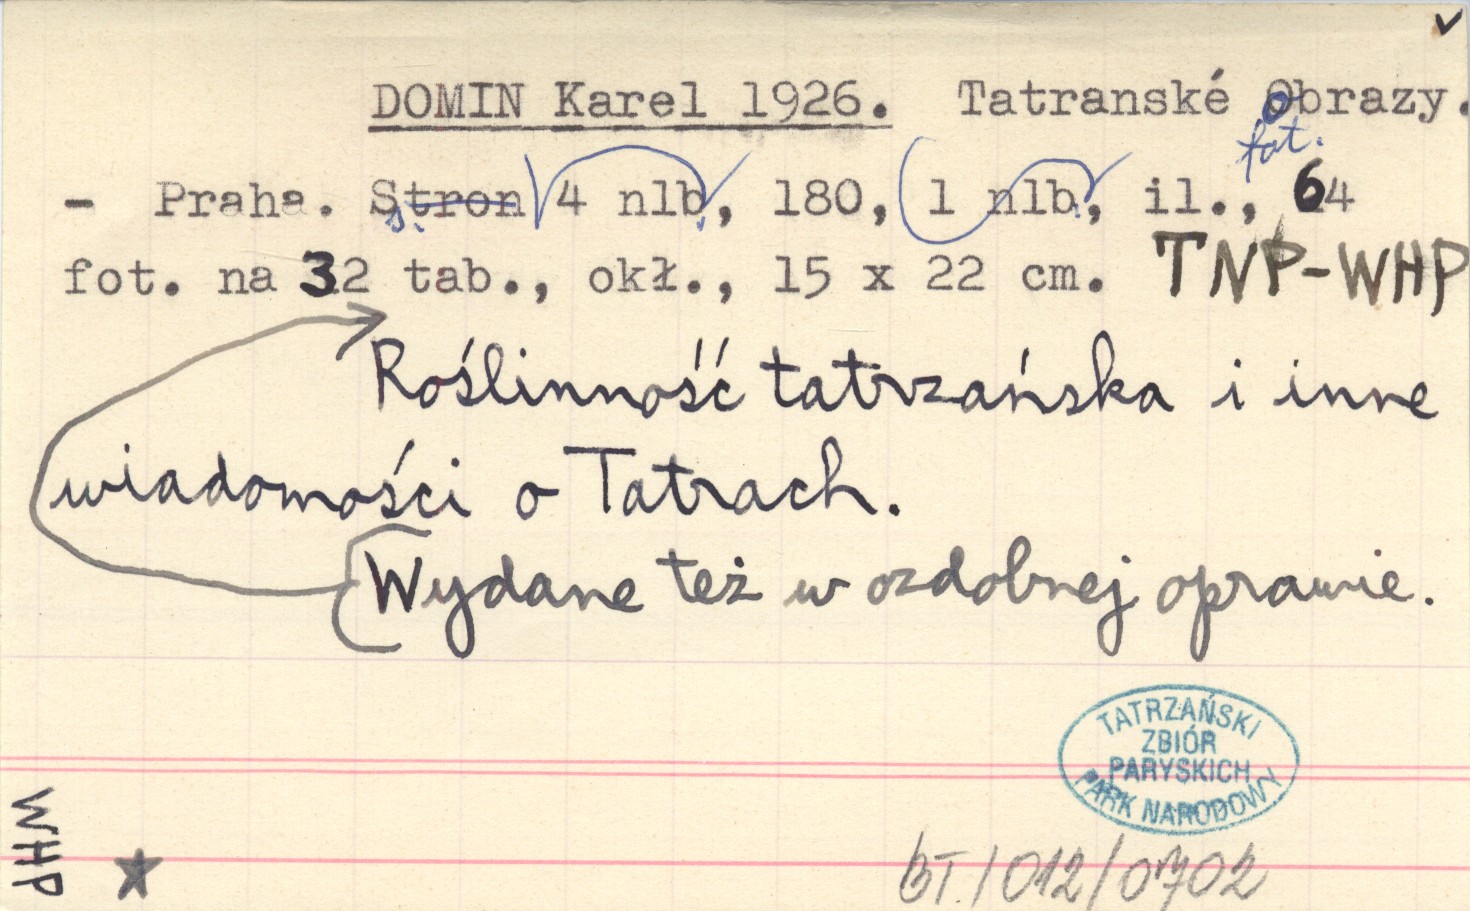 DOMIN Karel 1926. Tatranské Obrazy.
fot.
- Praha. Stron s. 4 nlb., 180, 1 nlb., il., 64
fot. na 32 tab., okł., 15 x 22 cm. TNP-WHP
Roślinność tatrzańska i inne
wiadomości o Tatrach.
Wydane też w ozdobnej oprawie.
TATRZAŃSKI
ZBIÓR
PARYSKICH
PARK NARODOWY
WHP
BT./012/0702